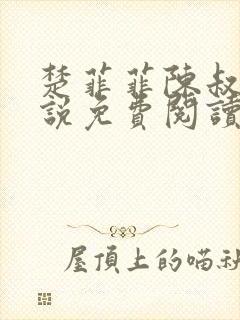 楚菲菲陳叔
說免費閱讀
屋頂上的喵